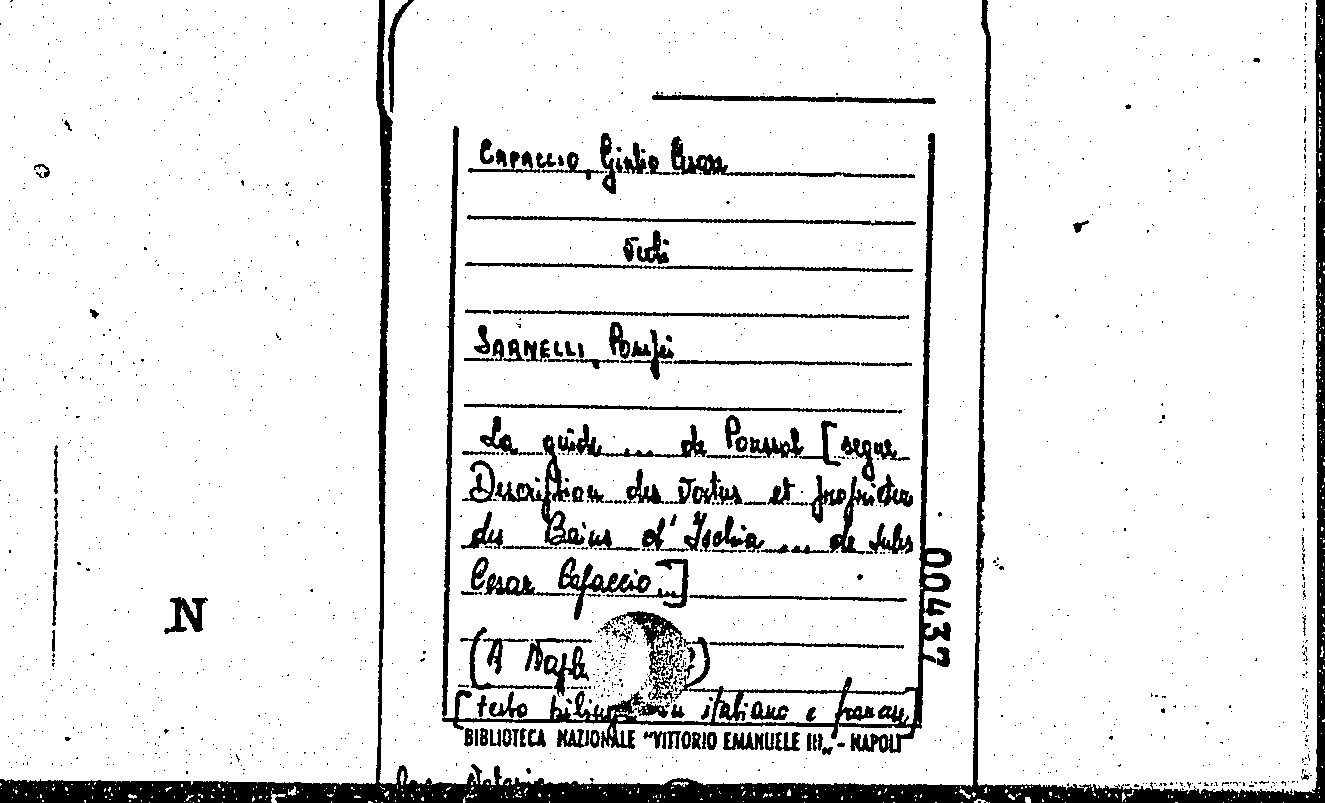 CAPACCIO, Giulio Cesare
vedi
SARNELLI, Pompei
La guide ... de Poussol [segue
Description des vertus et proprietes
des Bains d'Ischia ... de Jules
Cesar Capaccio ...]
(A Naples )
[testo bilingue in italiano e francese]
BIBLIOTECA NAZIONALE "VITTORIO EMANUELE III„ - NAPOLI
00437
N